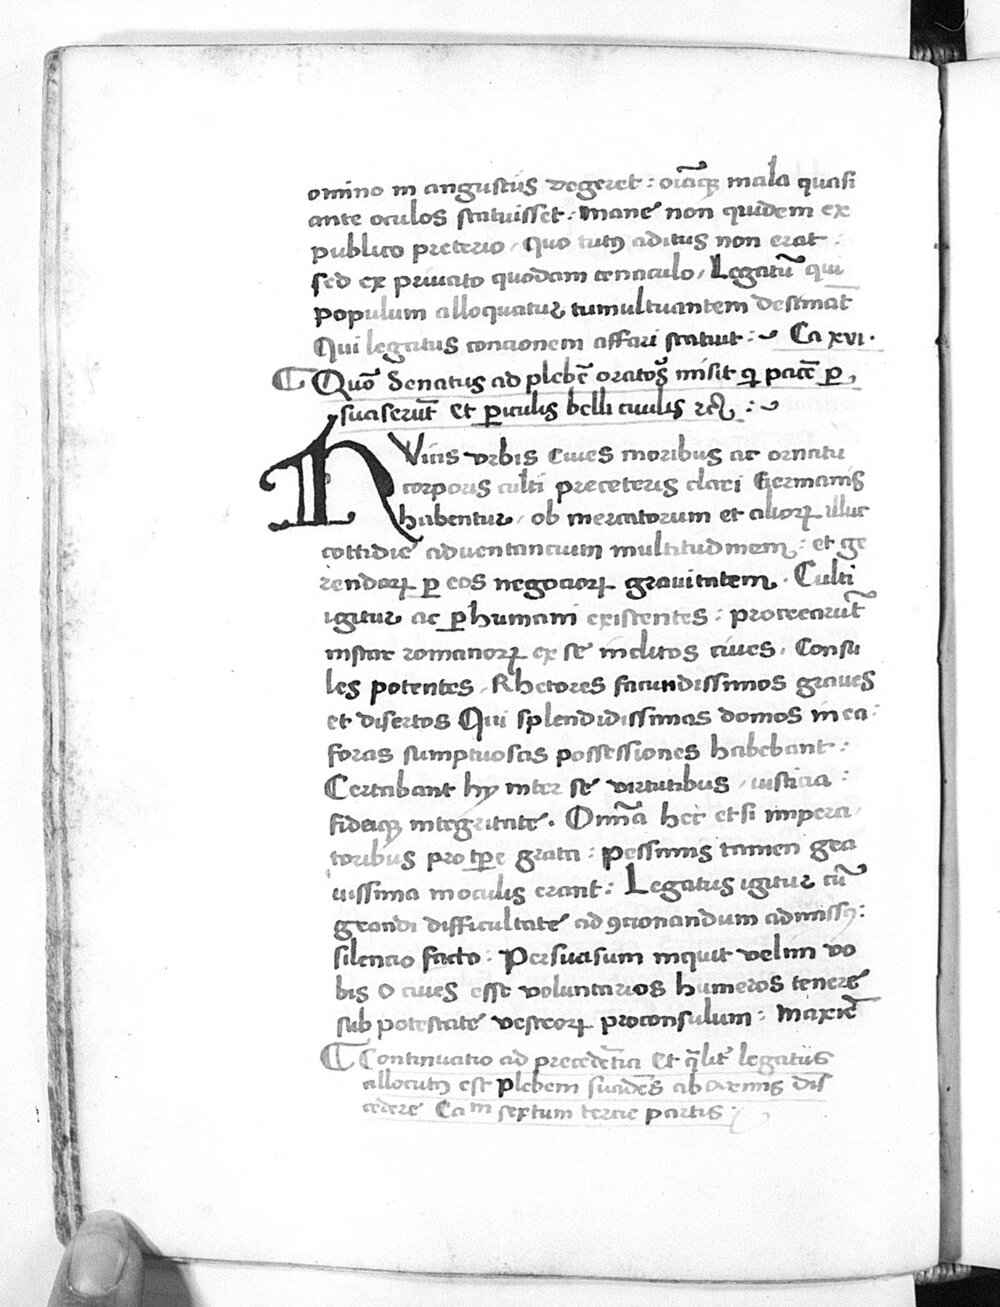 omino in angustiis degeret : oi͞aq̷ mala quasi
ante oculos statuisset : Mane non quidem ex
publico pretorio / quo tutꝰ aditus non erat :
sed ex priuato quodam cenaculo / Legatū qui
populum alloquatur tumultuantem destinat
Qui legatus concionem affari statuit : ~ Ca xvi ·
¶ Quō Senatus ad plebē oratoꝝ misit q̄ pacē ꝑ,
suaserūt et ꝑiculis belli ciuilis ⁊cꝫ : ~
Huius vrbis Ciues moribus ac ornatu
corporis culti preceteris clari Germanis
habentur / ob mercatorum et alioꝝ illuc
cottidie aduentancium multitudinem : et ge
rendaꝝ ꝑ eos negocioꝝ grauitatem · Culti
igitur ac ꝑhumani existentes : procrearūt
instar romanoꝝ ex se inclitos ciues · Consu
les potentes / Rhetores facundissimos graues
et disertos Qui splendidissimas domos in ea :
foras sumptuosas possessiones habebant :
Certabant hy inter se virtutibus / iusticia :
fideiq̷ integritate · Omīa hec etsi impera/
toribus pro tꝑe grata : pessimis tamen gra
uissima in oculis erant : Legatus igitur cū
grandi difficultate ad ꝯcionandum admissꝰ :
silencio facto : Persuasum inquit velim vo
bis o ciues esse voluntarios humeros tenere
sub potestate vestroꝝ proconsulum : Maxīe
¶ Continuatio ad precedētia et q̄lit̄ legatus
allocutꝰ est plebem suadēs ab armis dis
cedere Ca m sextum tercie partis :